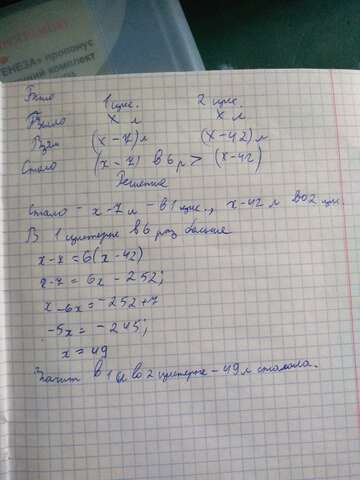 ГЕНЕЗА» пропонує
ний комплект
1 цис. 2 цис.
Было х л х л
(х-7) л (х-42) л
Стало (х-7) в 6 р > (х-42)
Решение
Стало - х-7 л - в 1 цис., х-42 л во 2 цис.
В 1 цистерне в 6 раз больше
х-7=6(х-42)
х-7=6х-252;
х-6х=-252+7
-5х=-245;
х=49
Значит в 1 и во 2 цистерне - 49 л